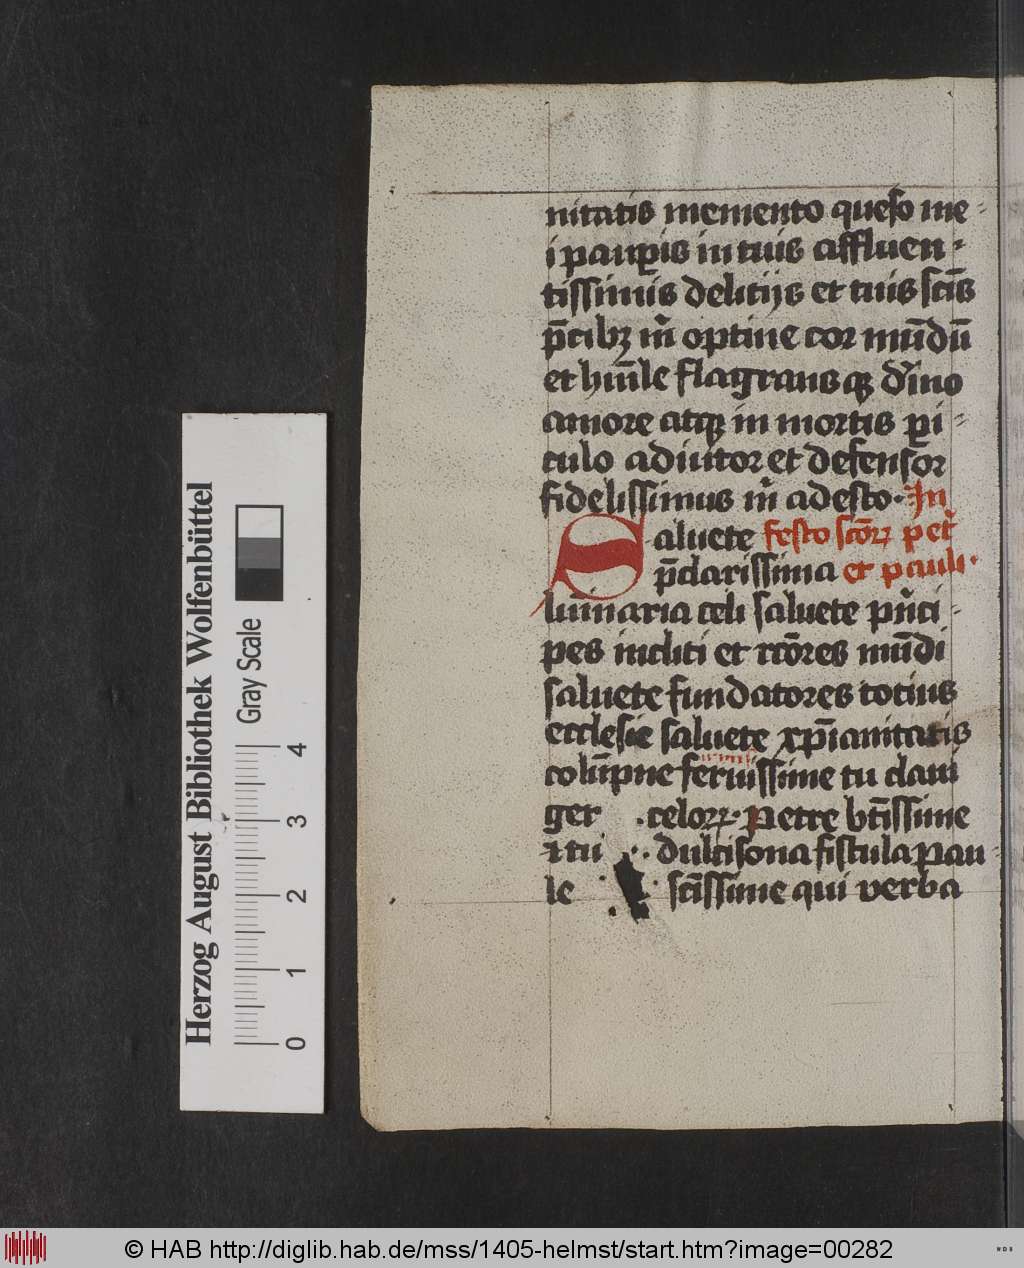 nitatis memento queso me-
i paup̲is in tuis affluen-
tissimis delitijs et tuis sc̄is
p̄cibꝫ m̄ optine cor mūdū
et hūile flagrans qꝫ d'ino
amore atqꝫ in mortis ꝑi-
culo adiutor et defensor
fidelissimus m̄ adesto· In
Saluete festo sc̄oꝝ pet̄
p̄clarissima et pauli·
luīnaria celi saluete pn̄ci-
pes incliti et rc̄ores mūdi
saluete fundatores totius
ecclesie saluete xp̄ianitatis
colūpne firmissime tu claui
ger celoꝝ· Petre bt̄issime
⁊ tu dulcisona fistula Pau-
le sc̄issime qui verba
Herzog August Bibliothek Wolfenbüttel
Gray Scale
0 1 2 3 4
© HAB http://diglib.hab.de/mss/1405-helmst/start.htm?image=00282